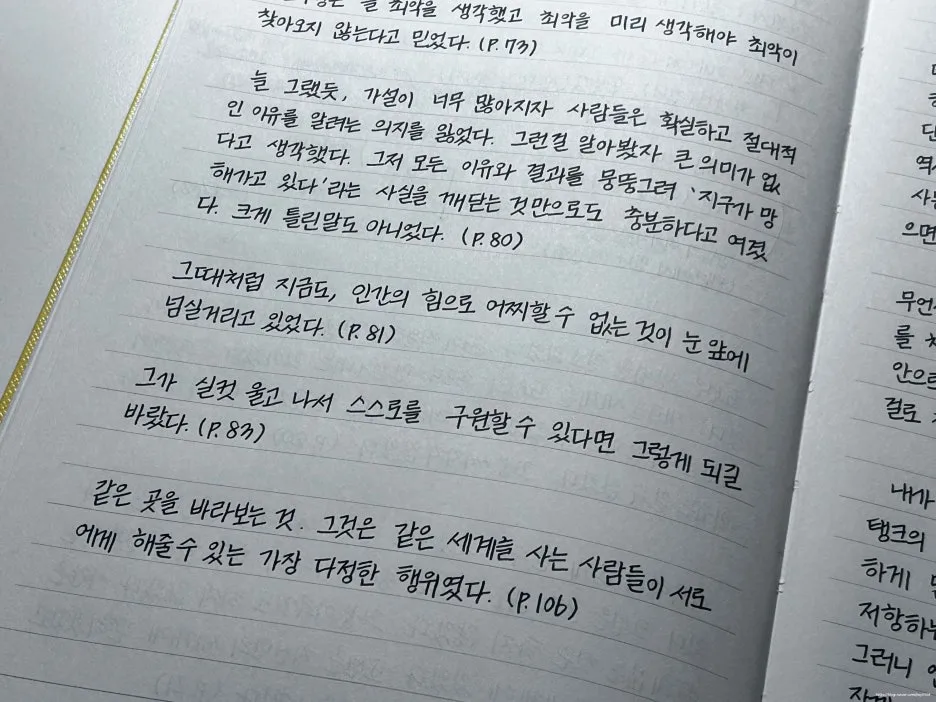 늘 최악을 생각했고 최악을 미리 생각해야 최악이
찾아오지 않는다고 믿었다. (P.73)
늘 그랬듯, 가설이 너무 많아지자 사람들은 확실하고 절대적
인 이유를 알려는 의지를 잃었다. 그런걸 알아봤자 큰 의미가 없
다고 생각했다. 그저 모든 이유와 결과를 뭉뚱그려 '지구가 망
해가고 있다'라는 사실을 깨닫는 것만으로도 충분하다고 여겼
다. 크게 틀린말도 아니었다. (P.80)
그때처럼 지금도, 인간의 힘으로 어찌할 수 없는 것이 눈 앞에
넘실거리고 있었다. (P.81)
그가 실컷 울고 나서 스스로를 구원할 수 있다면 그렇게 되길
바랐다. (P.83)
같은 곳을 바라보는 것. 그것은 같은 세계를 사는 사람들이 서로
에게 해줄 수 있는 가장 다정한 행위였다. (P.106)
으면
무언
를
안으로
걸로
내가
탱크의
하게
저항하
그러니